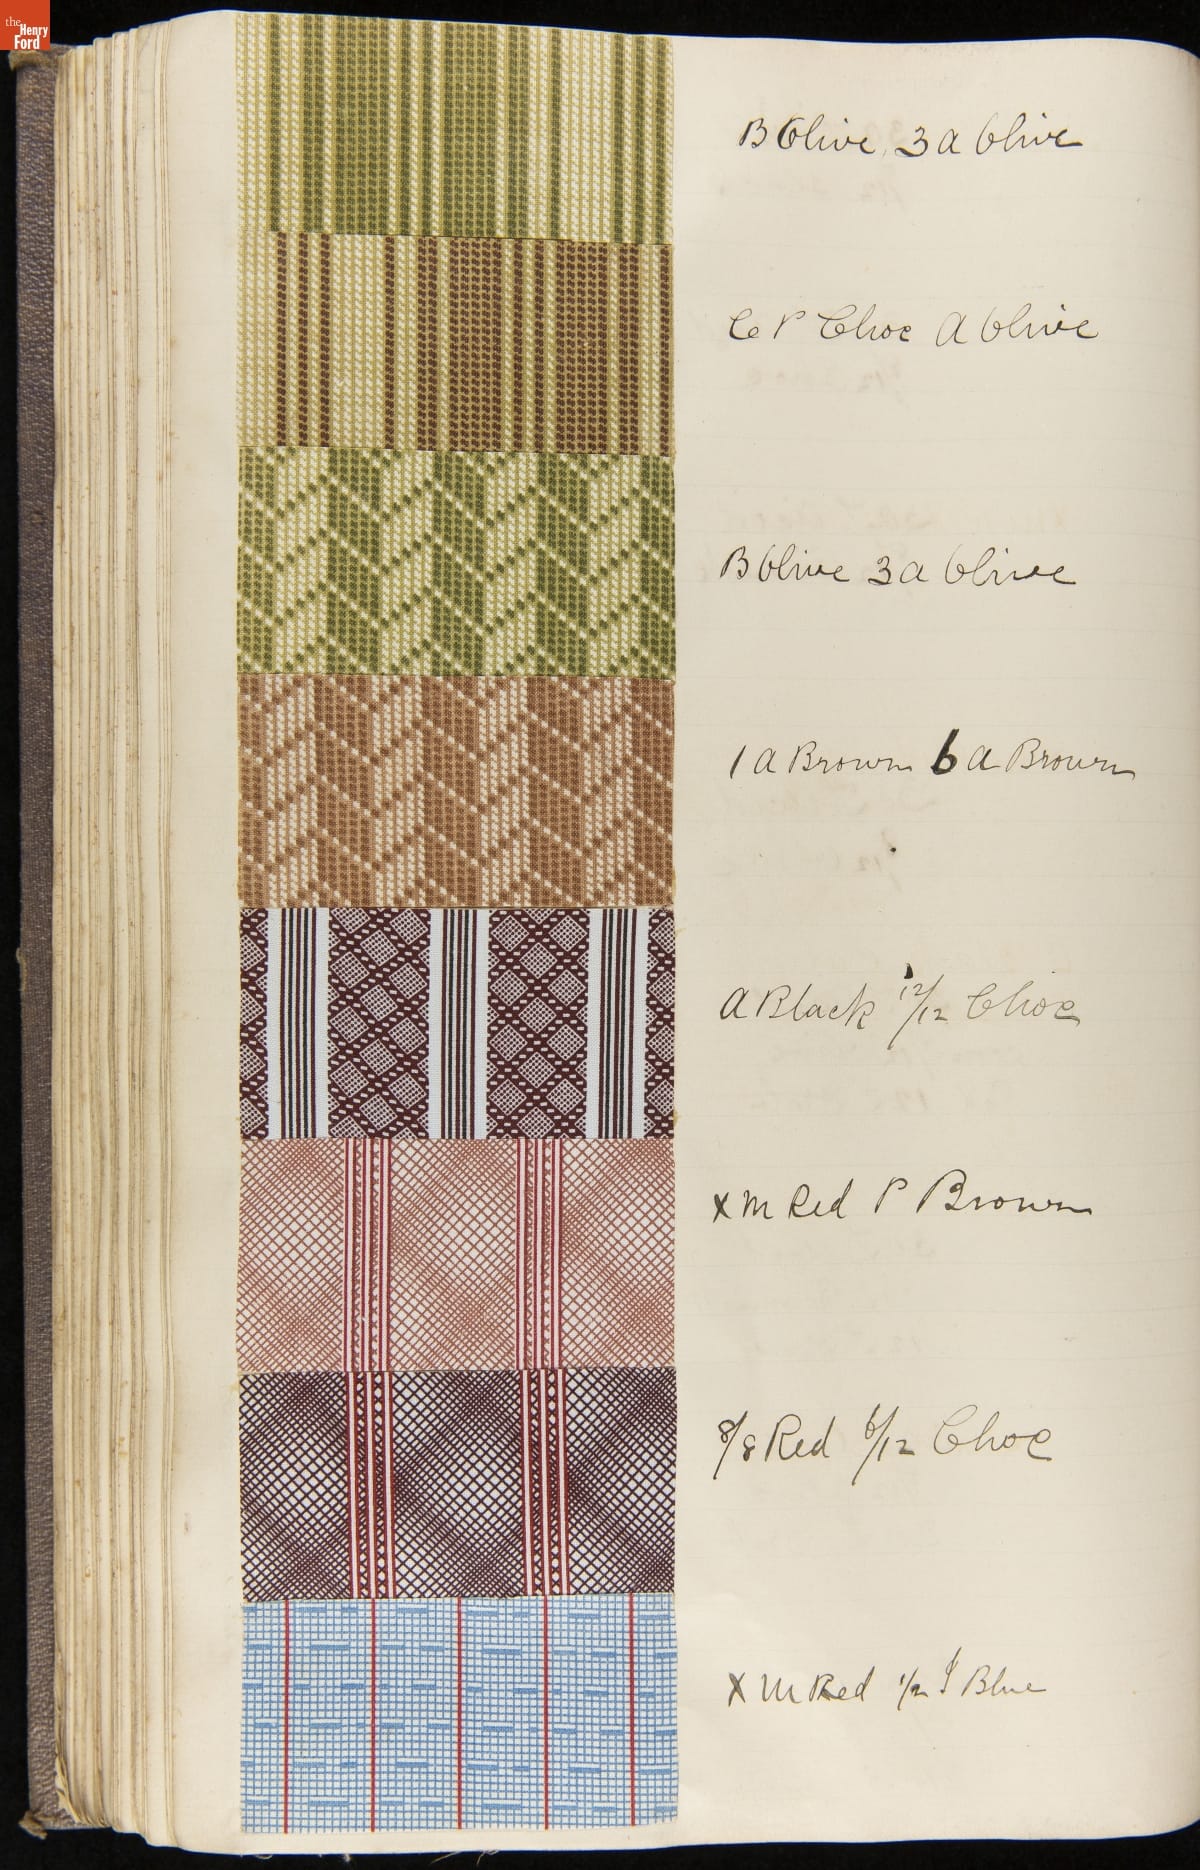 the
Henry
Ford
B Olive, 3 a Olive
Co P Choc a Olive
B Olive 3 a Olive
1 a Brown 6 a Brown
a Black 12/12 Choc
x m Red P Brown
8/8 Red 6/12 Choc
x m Red 1/2 I Blue